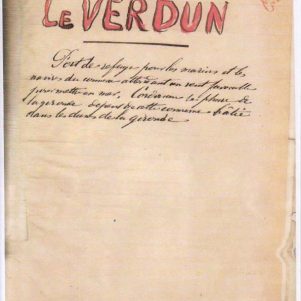 Le VERDUN
Port de refuge pour les marins et les
navires du commerce attendant un vent favorable
pour mettre en mer. Cordouan le phare de
la gironde dépend de cette commune bâtie
dans les dunes de la gironde